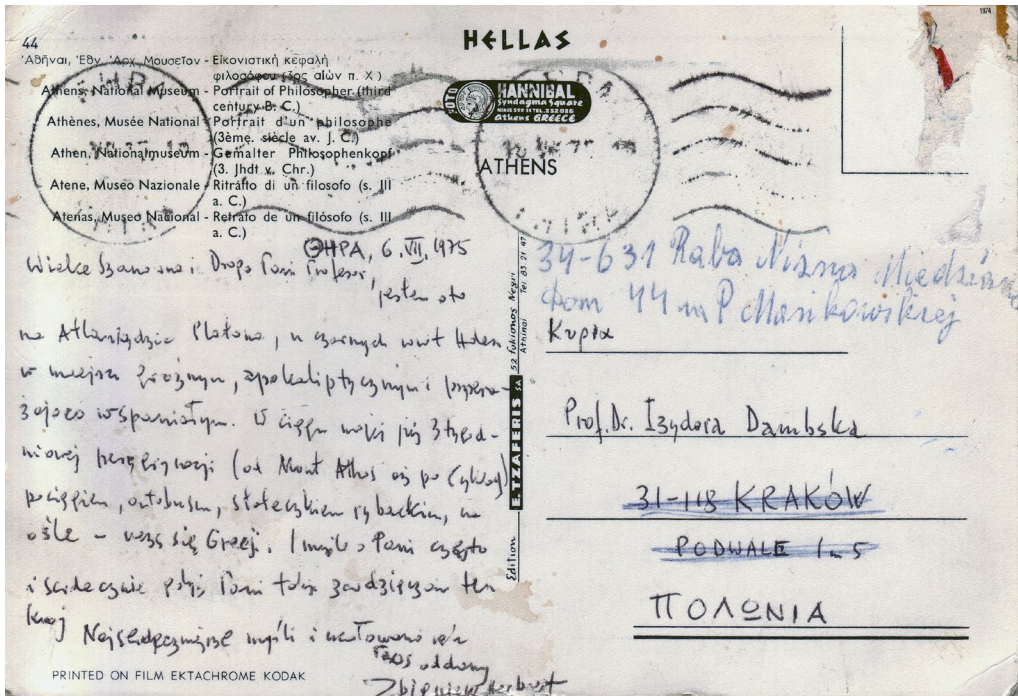 44
HELLAS
1974
Ἀθῆναι, Ἐθν. Ἀρχ. Μουσεῖον - Εἰκονιστικὴ κεφαλὴ
φιλοσόφου (3ος αἰὼν π. Χ.)
Athens, National Museum - Portrait of Philosopher (third
century B. C.)
Athènes, Musée National - Portrait d'un philosophe
(3ème. siècle av. J. C.)
Athen, Nationalmuseum - Gemalter Philosophenkopf
(3. Jhdt v. Chr.)
Atene, Museo Nazionale - Ritratto di un filosofo (s. III
a. C.)
Atenas, Museo Nacional - Retrato de un filósofo (s. III
a. C.)
FOTO HANNIBAL
Syndagma Square
Athens GREECE
ATHENS
ΘΗΡΑ, 6.VII.1975
Wielce Szanowna i Droga Pani Profesor,
jestem oto
na Atlantydzie Platona, u czarnych wrót Hadesu
w miejscu groźnym, apokaliptycznym i przera-
żająco wspaniałym. W ciągu mojej już 3 tygod-
niowej peregrynacji (od Mont Athos aż po Cyklady)
pociągiem, autobusem, stateczkiem rybackim, na
ośle - uczę się Grecji. I myślę o Pani często
i serdecznie gdyż Pani tak zawdzięczam ten
kraj
Najserdeczniejsze myśli i ucałowania rąk
oddany
Zbigniew Herbert
PRINTED ON FILM EKTACHROME KODAK
Edition E. TZAFERIS SA 52 Fokionos Negri
Athinai Tel 83.21.97
34-631 Raba Niżna
Dom 44 P
Κυρία
Prof. Dr. Izydora Dambska
31-118 KRAKÓW
PODWALE 1 m 5
ΠΟΛΩΝΙΑ